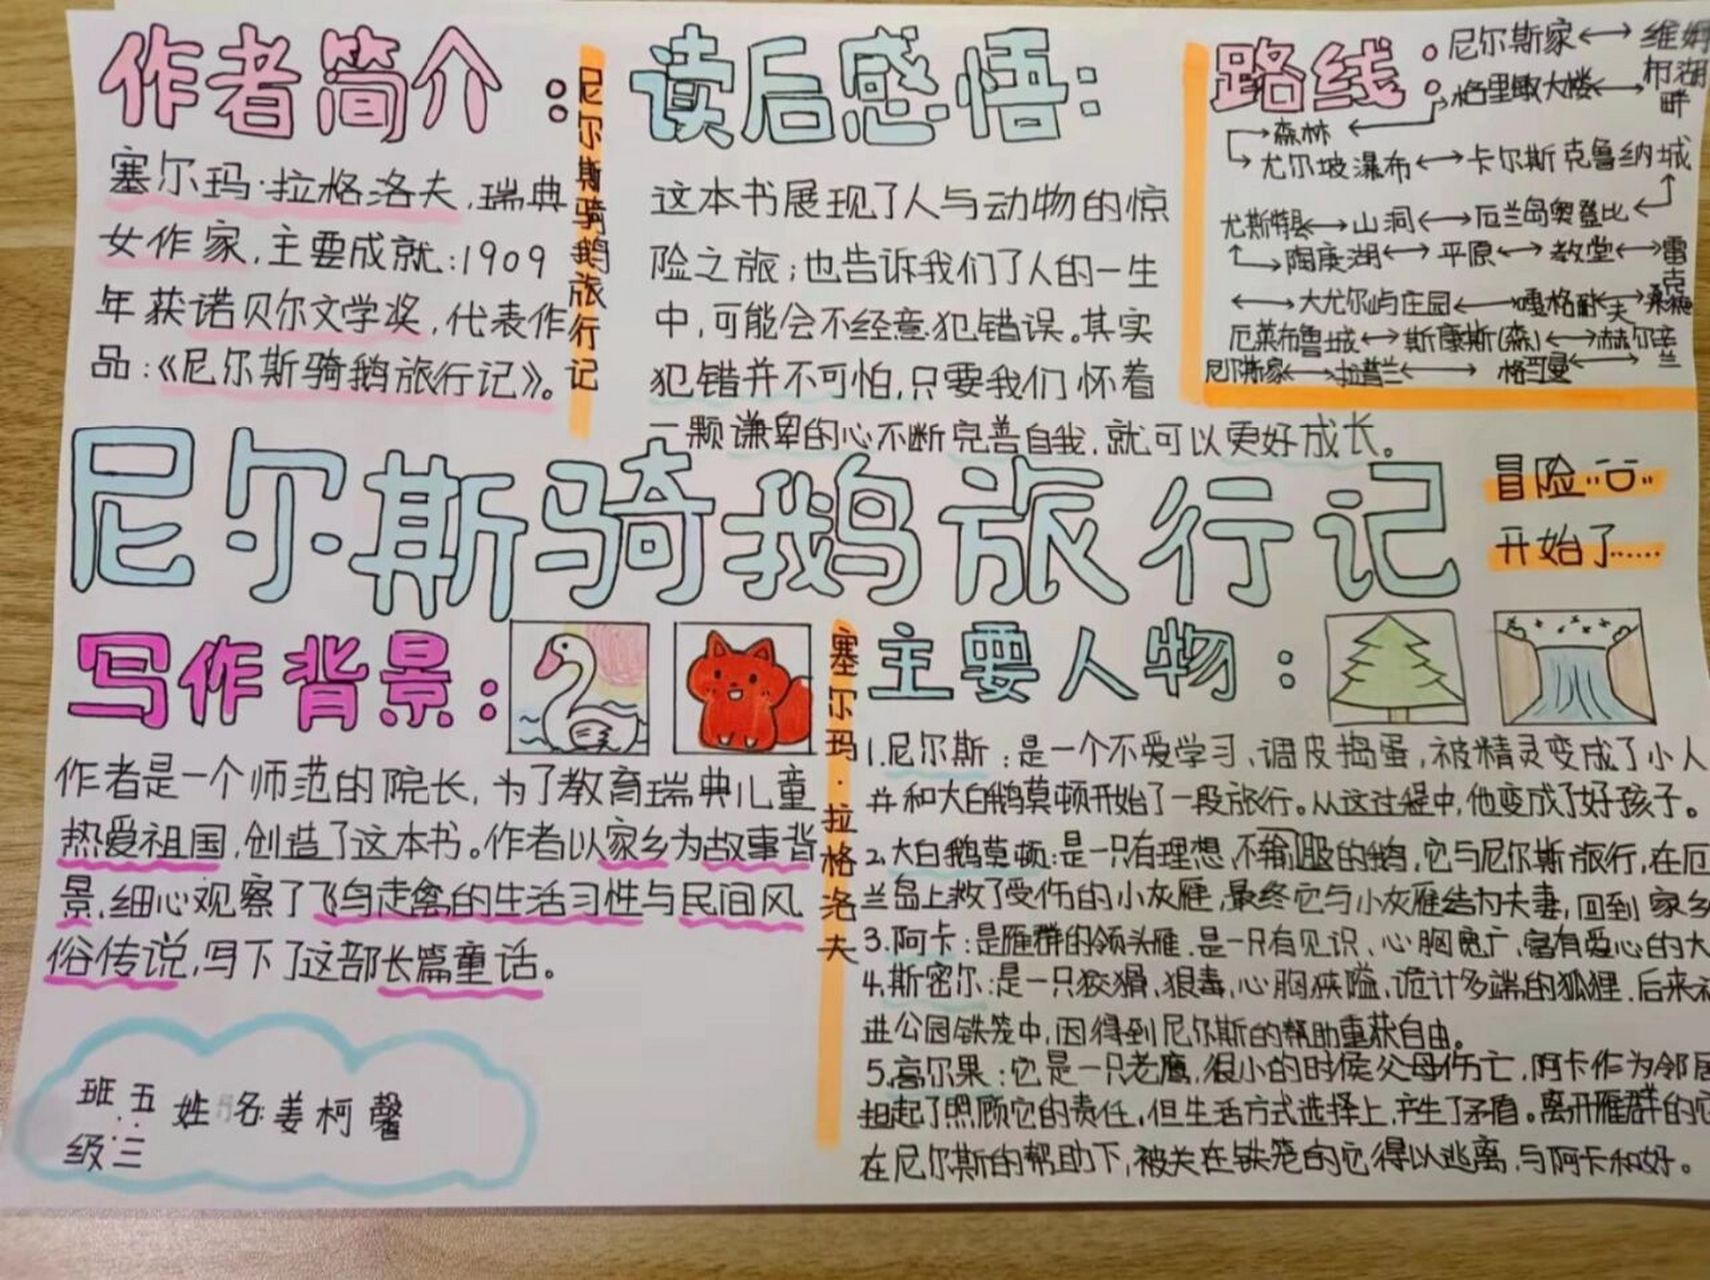 作者简介：
塞尔玛·拉格洛夫，瑞典
女作家，主要成就：1909
年获诺贝尔文学奖，代表作
品：《尼尔斯骑鹅旅行记》。
尼尔斯骑鹅旅行记
读后感悟：
这本书展现了人与动物的惊
险之旅；也告诉我们了人的一生
中，可能会不经意犯错误。其实
犯错并不可怕，只要我们怀着
一颗谦卑的心不断完善自我，就可以更好成长。
路线：
尼尔斯家←→维姆
布湖
畔
格里敏大楼←→
森林
尤尔坡瀑布←→卡尔斯克鲁纳城
尤斯特县←→山洞←→厄兰岛奥登比
陶庚湖←→平原←→教堂←→雷
克
←→大尤尔屿庄园←→
厄莱布鲁城←→斯康斯(森)←→赫尔辛
兰
尼尔斯家←→拉普兰←→
尼尔斯骑鹅旅行记
冒险
开始了……
写作背景：
作者是一个师范的院长，为了教育瑞典儿童
热爱祖国，创造了这本书。作者以家乡为故事背
景，细心观察了飞鸟走禽的生活习性与民间风
俗传说，写下了这部长篇童话。
塞尔玛·拉格洛夫
主要人物：
1.尼尔斯：是一个不爱学习、调皮捣蛋，被精灵变成了小人
并和大白鹅莫顿开始了一段旅行。从这过程中，他变成了好孩子。
2.大白鹅莫顿：是一只有理想，不服输的鹅，它与尼尔斯旅行，在厄
兰岛上救了受伤的小灰雁，最终它与小灰雁结为夫妻，回到家乡
3.阿卡：是雁群的领头雁，是一只有见识、心胸宽广，富有爱心的大
4.斯密尔：是一只狡猾、狠毒，心胸狭隘，诡计多端的狐狸，后来
进公园铁笼中，因得到尼尔斯的帮助重获自由。
5.高尔果：它是一只老鹰，很小的时候父母伤亡，阿卡作为邻居
担起了照顾它的责任，但生活方式选择上，产生了矛盾。离开雁群的它
在尼尔斯的帮助下，被关在铁笼的它得以逃离，与阿卡和好。
班级：五三
姓名：姜柯馨